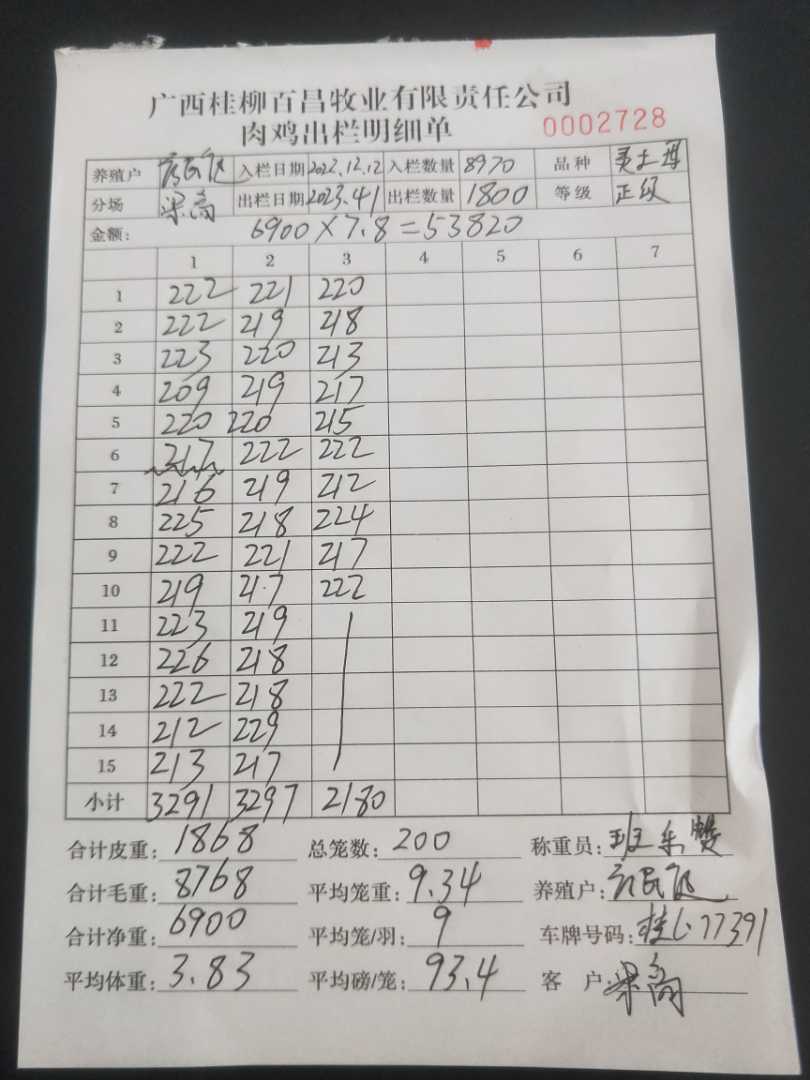 广西桂柳百昌牧业有限责任公司
肉鸡出栏明细单 0002728
养殖户 入栏日期 2022.12.12 入栏数量 8970 品种
分场 梁高 出栏日期 2023.4.1 出栏数量 1800 等级 正级
金额: 6900×7.8=53820
1 2 3 4 5 6 7
1 222 221 220
2 222 219 218
3 223 220 213
4 209 219 217
5 220 220 215
6 217 222 222
7 216 219 212
8 225 218 224
9 222 221 217
10 219 217 222
11 223 219
12 226 218
13 222 218
14 212 229
15 213 217
小计 3291 3297 2180
合计皮重: 1868 总笼数: 200 称重员: 班
合计毛重: 8768 平均笼重: 9.34 养殖户:
合计净重: 6900 平均笼/羽: 9 车牌号码: 桂L·77391
平均体重: 3.83 平均磅/笼: 93.4 客户: 梁高